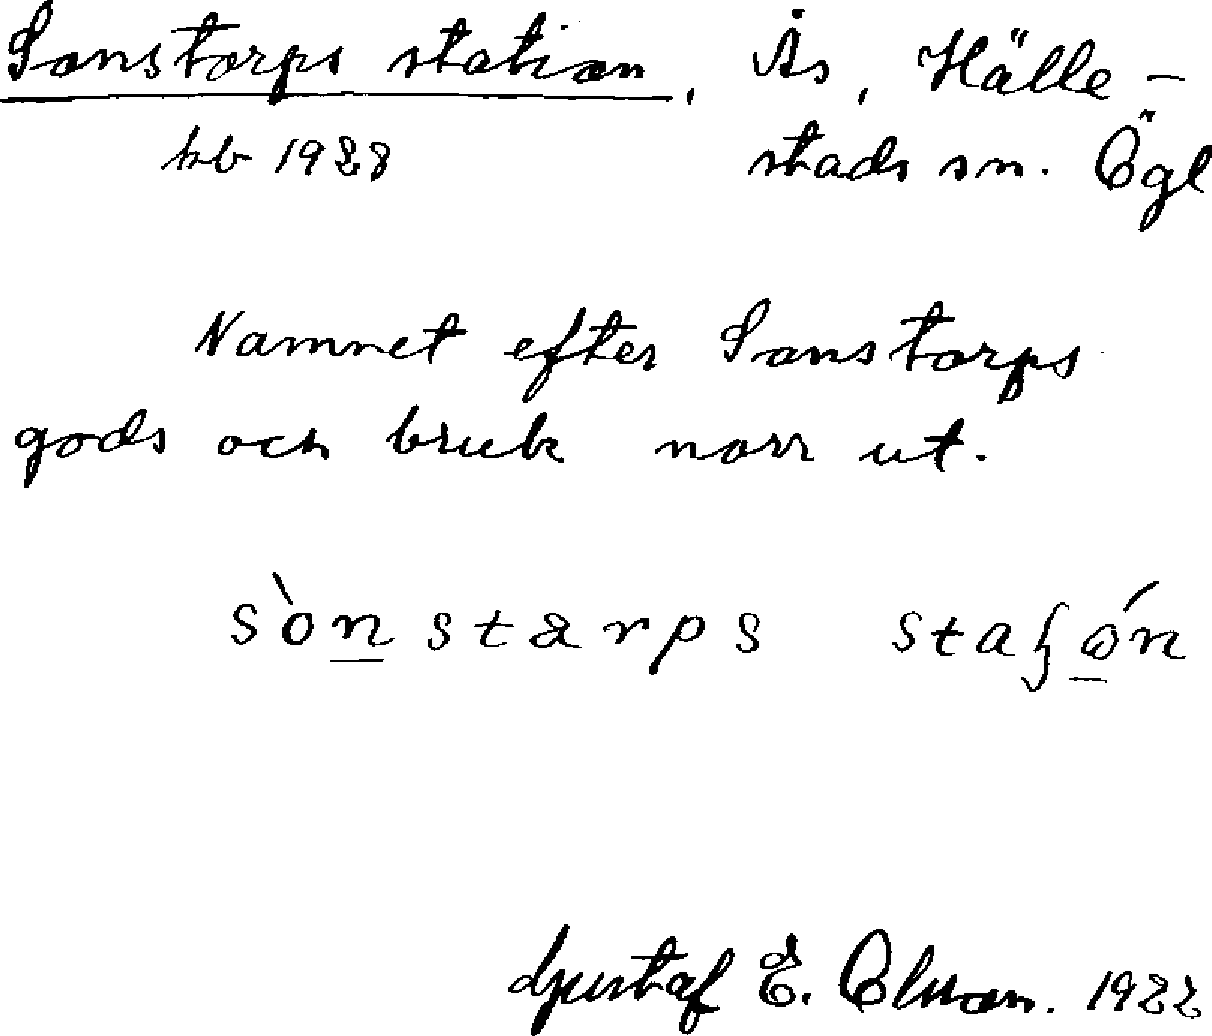 Sonstorps station, Ås, Hälle-
kb 1928 stads sn. Ögl
Namnet efter Sonstorps
gods och bruk norr ut.
sònstarps staʃón
Gustaf E. Olson. 1922